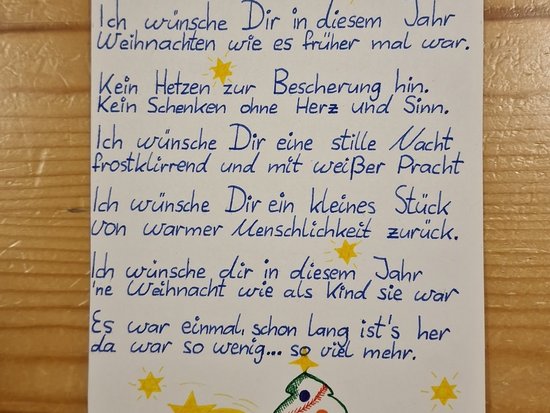 Ich wünsche Dir in diesem Jahr
Weihnachten wie es früher mal war.
Kein Hetzen zur Bescherung hin.
Kein Schenken ohne Herz und Sinn.
Ich wünsche Dir eine stille Nacht
frostklirrend und mit weißer Pracht
Ich wünsche Dir ein kleines Stück
von warmer Menschlichkeit zurück.
Ich wünsche dir in diesem Jahr
'ne Weihnacht wie als Kind sie war
Es war einmal, schon lang ist's her
da war so wenig... so viel mehr.